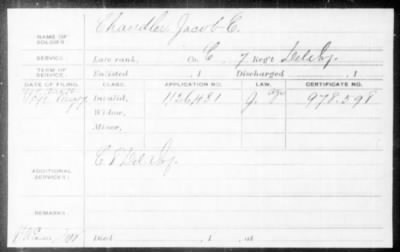 NAME OF SOLDIER: Chandler, Jacob C.
SERVICE: Late rank, Co. C, 7 Reg't Del. Inf.
TERM OF SERVICE: Enlisted , 1 Discharged , 1
DATE OF FILING. CLASS. APPLICATION NO. LAW. CERTIFICATE NO.
Invalid, 426481 978.598
Widow,
Minor,
ADDITIONAL SERVICES: Del Inf.
REMARKS:
Died , 1 , at